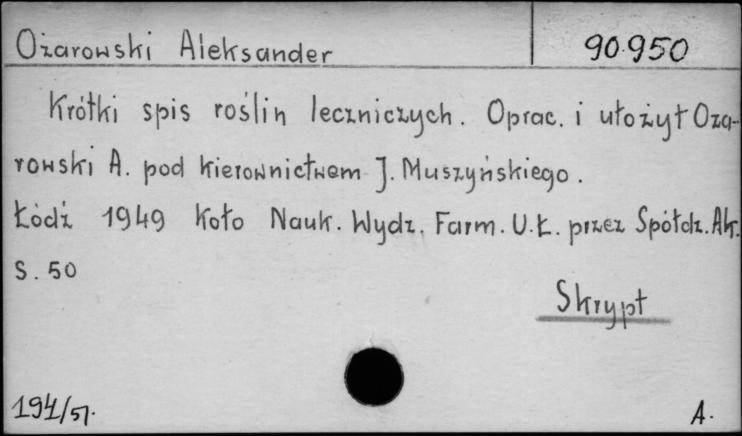 Ożarowski Aleksander
90.950
Krótki spis roślin leczniczych. Oprac. i ułożył Oża-
rowski A. pod kierownictwem J. Muszyńskiego.
Łódź 1949 Koło Nauk. Wydz. Farm. U.Ł. przez Spółdz. Ak.
S. 50
Skrypt
194/51.
A.